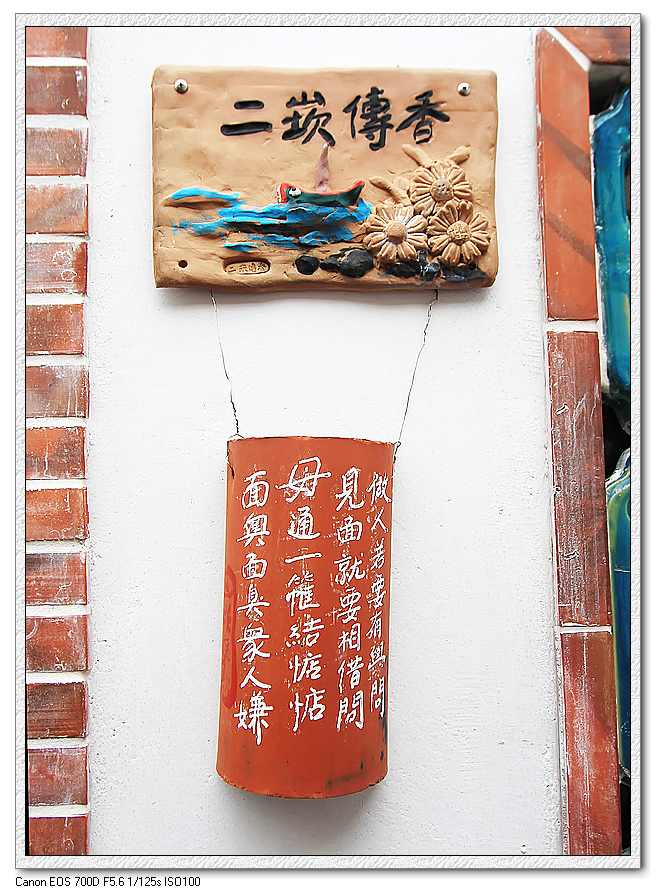 二崁傳香
做人若要有學問
見面就要相借問
毋通一箍結惦惦
面臭面臭眾人嫌
Canon EOS 700D F5.6 1/125s ISO100